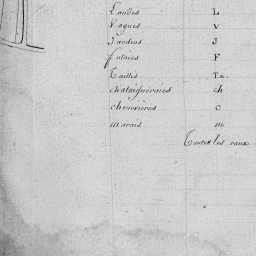 Landes L
Vagues V
Jardins J
futaies F
Taillis Ta.
chataigneraies ch
chenevières c
marais m
Toutes les eaux